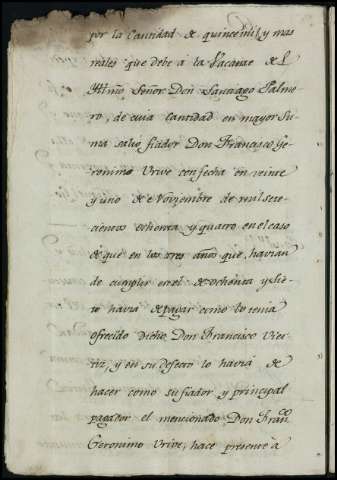 por la Cantidad de quince mil, y mas
reales que debe à la Vacante de l
Illmõ. Señor Don Santiago Palme
ro, de cuia Cantidad en mayor Su
ma saliò fiador Don Francisco Ge
ronimo Vrive con fecha en veinte
y uno de Noviembre de mil sete
cientos ochenta y quatro en el caso
de que en los tres años que, havian
de cumplir en el de ochenta y sie
te havia de pagar como lo tenia
ofrecido Dicho, Don Francisco Vier
tiz, y en su defecto lo havia de
hacer como su fiador y principal
pagador el mencionado Don Fran.co
Geronimo Vrive, hace presente à